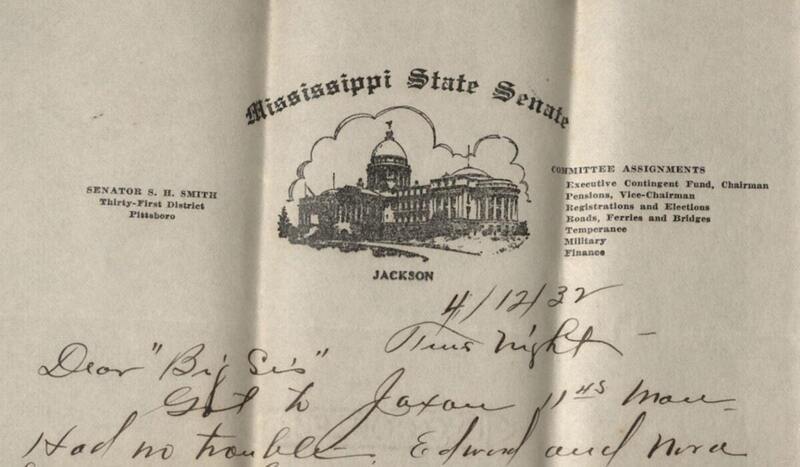 Mississippi State Senate
SENATOR S. H. SMITH
Thirty-First District
Pittsboro
COMMITTEE ASSIGNMENTS
Executive Contingent Fund, Chairman
Pensions, Vice-Chairman
Registrations and Elections
Roads, Ferries and Bridges
Temperance
Military
Finance
JACKSON
4/12/32
Tues Night —
Dear "Big Sis"
Got to Jaxon 11 45 Mon
Had no trouble. Edward and Nora